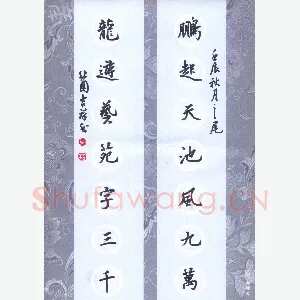 壬辰秋月之尾
鹏起天池風九萬
龍遊藝苑字三千
Shufawang.CN